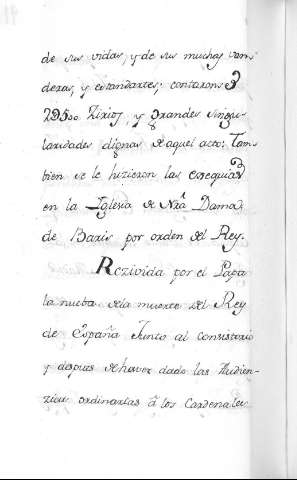 de sus vidas y de sus muchas van-
deras, y estandartes; contarons
2500 Zirios, y grandes singu-
laridades dignas de aquel acto; Tam
bien se le hizieron las exequias
en la Iglesia de Nrã Dama
de Baris por orden del Rey.
Rezivida por el Papa
la nueba de la muerte del Rey
de España Junto al consistorio
y despues de haver dado las Audien-
zias ordinarias â los Cardenales